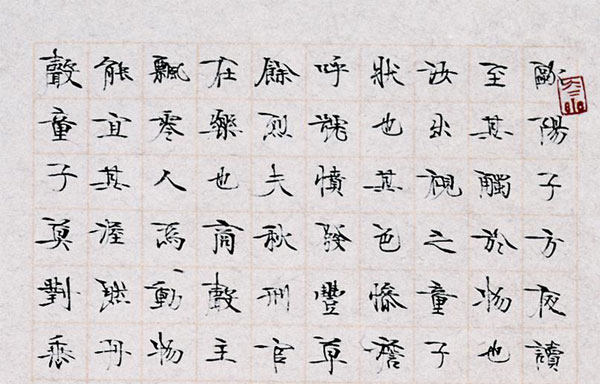 歐陽子方夜讀
至其觸於物也
汝出視之童子
狀也其色慘澹
呼號憤發豐草
餘烈夫秋刑官
在樂也商聲主
飄零人為動物
能宜其渥然丹
聲童子莫對垂